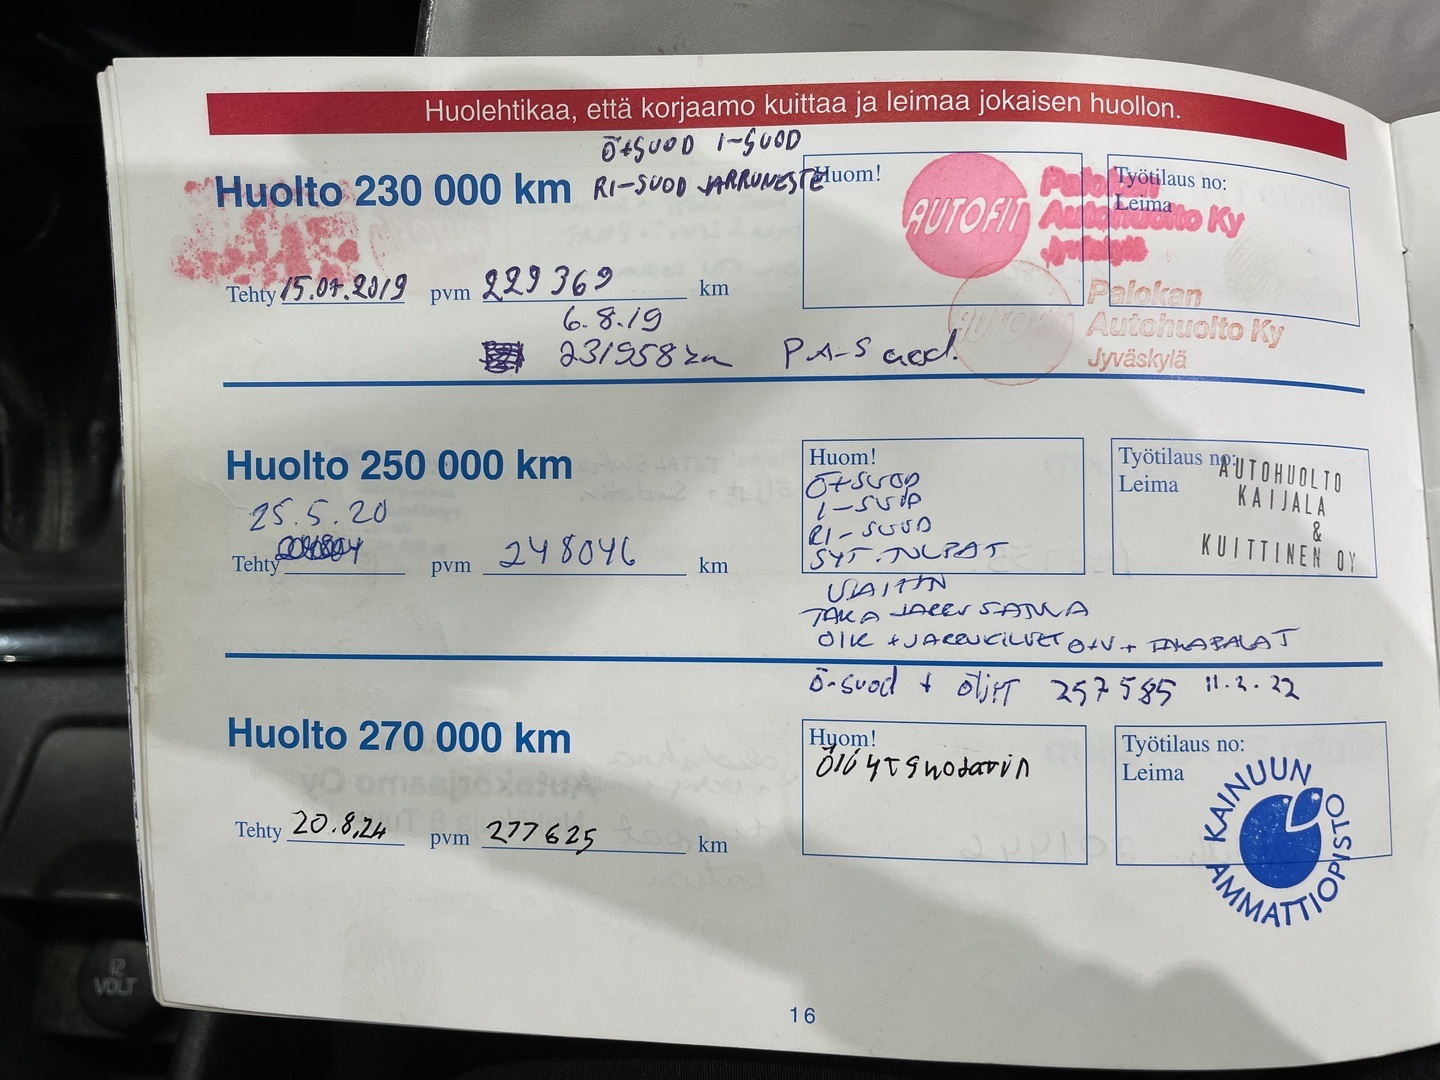 Huolehtikaa, että korjaamo kuittaa ja leimaa jokaisen huollon.
Ö+SUOD I-SUOD
Huolto 230 000 km RI-SUOD JARRUNESTE
Huom!
AUTOFIT
Palokan
Autohuolto Ky
Jyväskylä
Työtilaus no:
Leima
Tehty 15.07.2019 pvm 229 369 km
Palokan
Autohuolto Ky
Jyväskylä
6.8.19
231958 km PA-Suod.
Huolto 250 000 km
25.5.20
Tehty pvm 248046 km
Huom!
Ö+SUOD
I-SUOD
RI-SUOD
SYT.TULPAT
TAKA JARRUSATULA
OIK + JARRUKILVET O+V + TAKAPALAT
Työtilaus no:
Leima
AUTOHUOLTO
KAIJALA
&
KUITTINEN OY
Ö-suod + öljyt 257585 11.2.22
Huolto 270 000 km
Tehty 20.8.24 pvm 277625 km
Huom!
Öljyt suodatin
Työtilaus no:
Leima
KAINUUN AMMATTIOPISTO
16
12
VOLT